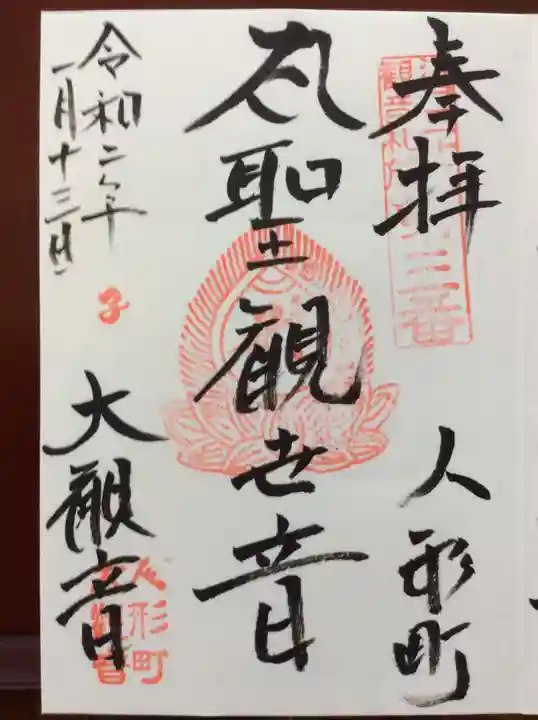 奉拝
人形町
大聖観世音
令和二年
一月十三日
子
大観音
人形町